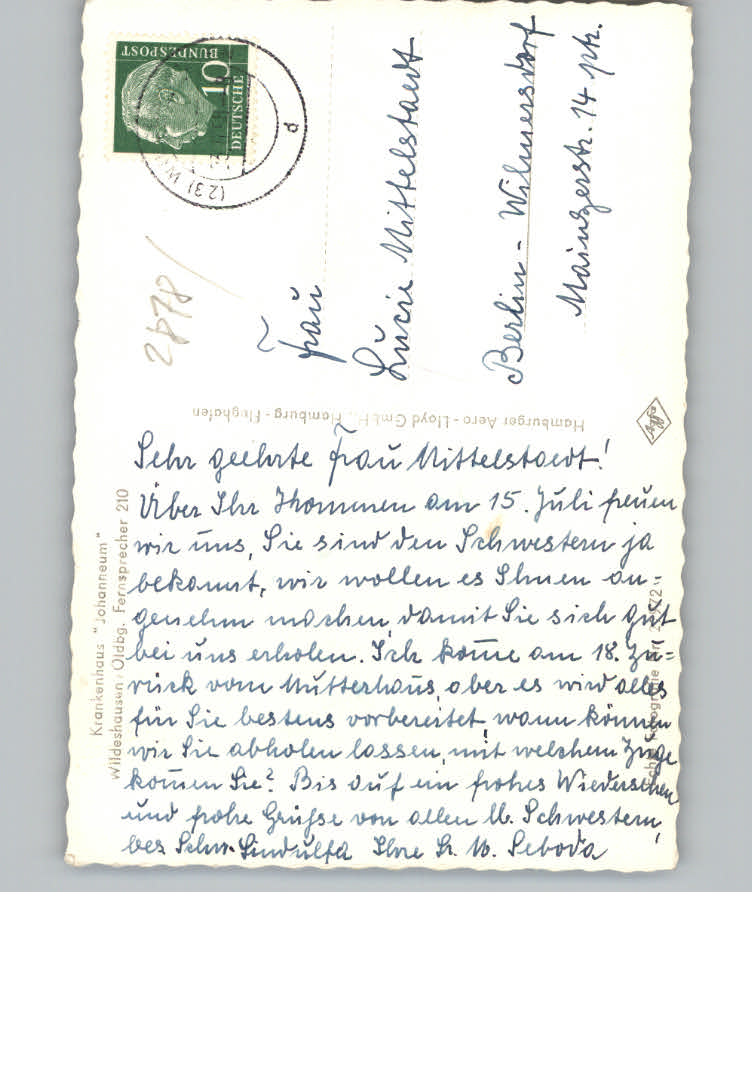 DEUTSCHE
BUNDESPOST
10
(23)
d
2878/
Frau
Lucie Mittelstaedt
Berlin - Wilmersdorf
Mainzerstr. 14 ptr.
Hamburger Aero-Lloyd GmbH., Hamburg-Flughafen
Agfa
Krankenhaus "Johanneum"
Wildeshausen/Oldbg. Fernsprecher 210
Sehr geehrte Frau Mittelstaedt!
Über Ihr Kommen am 15. Juli freuen
wir uns, Sie sind den Schwestern ja
bekannt, wir wollen es Ihnen an=
genehm machen, damit Sie sich gut
bei uns erholen. Ich komme am 18. zu=
rück vom Mutterhaus, aber es wird alles
für Sie bestens vorbereitet, wann können
wir Sie abholen lassen, mit welchem Zuge
kommen Sie? Bis auf ein frohes Wiedersehen
und frohe Grüße von allen lb. Schwestern,
bes. Schw. Lindulfa Ihre Sr. M. Seboda